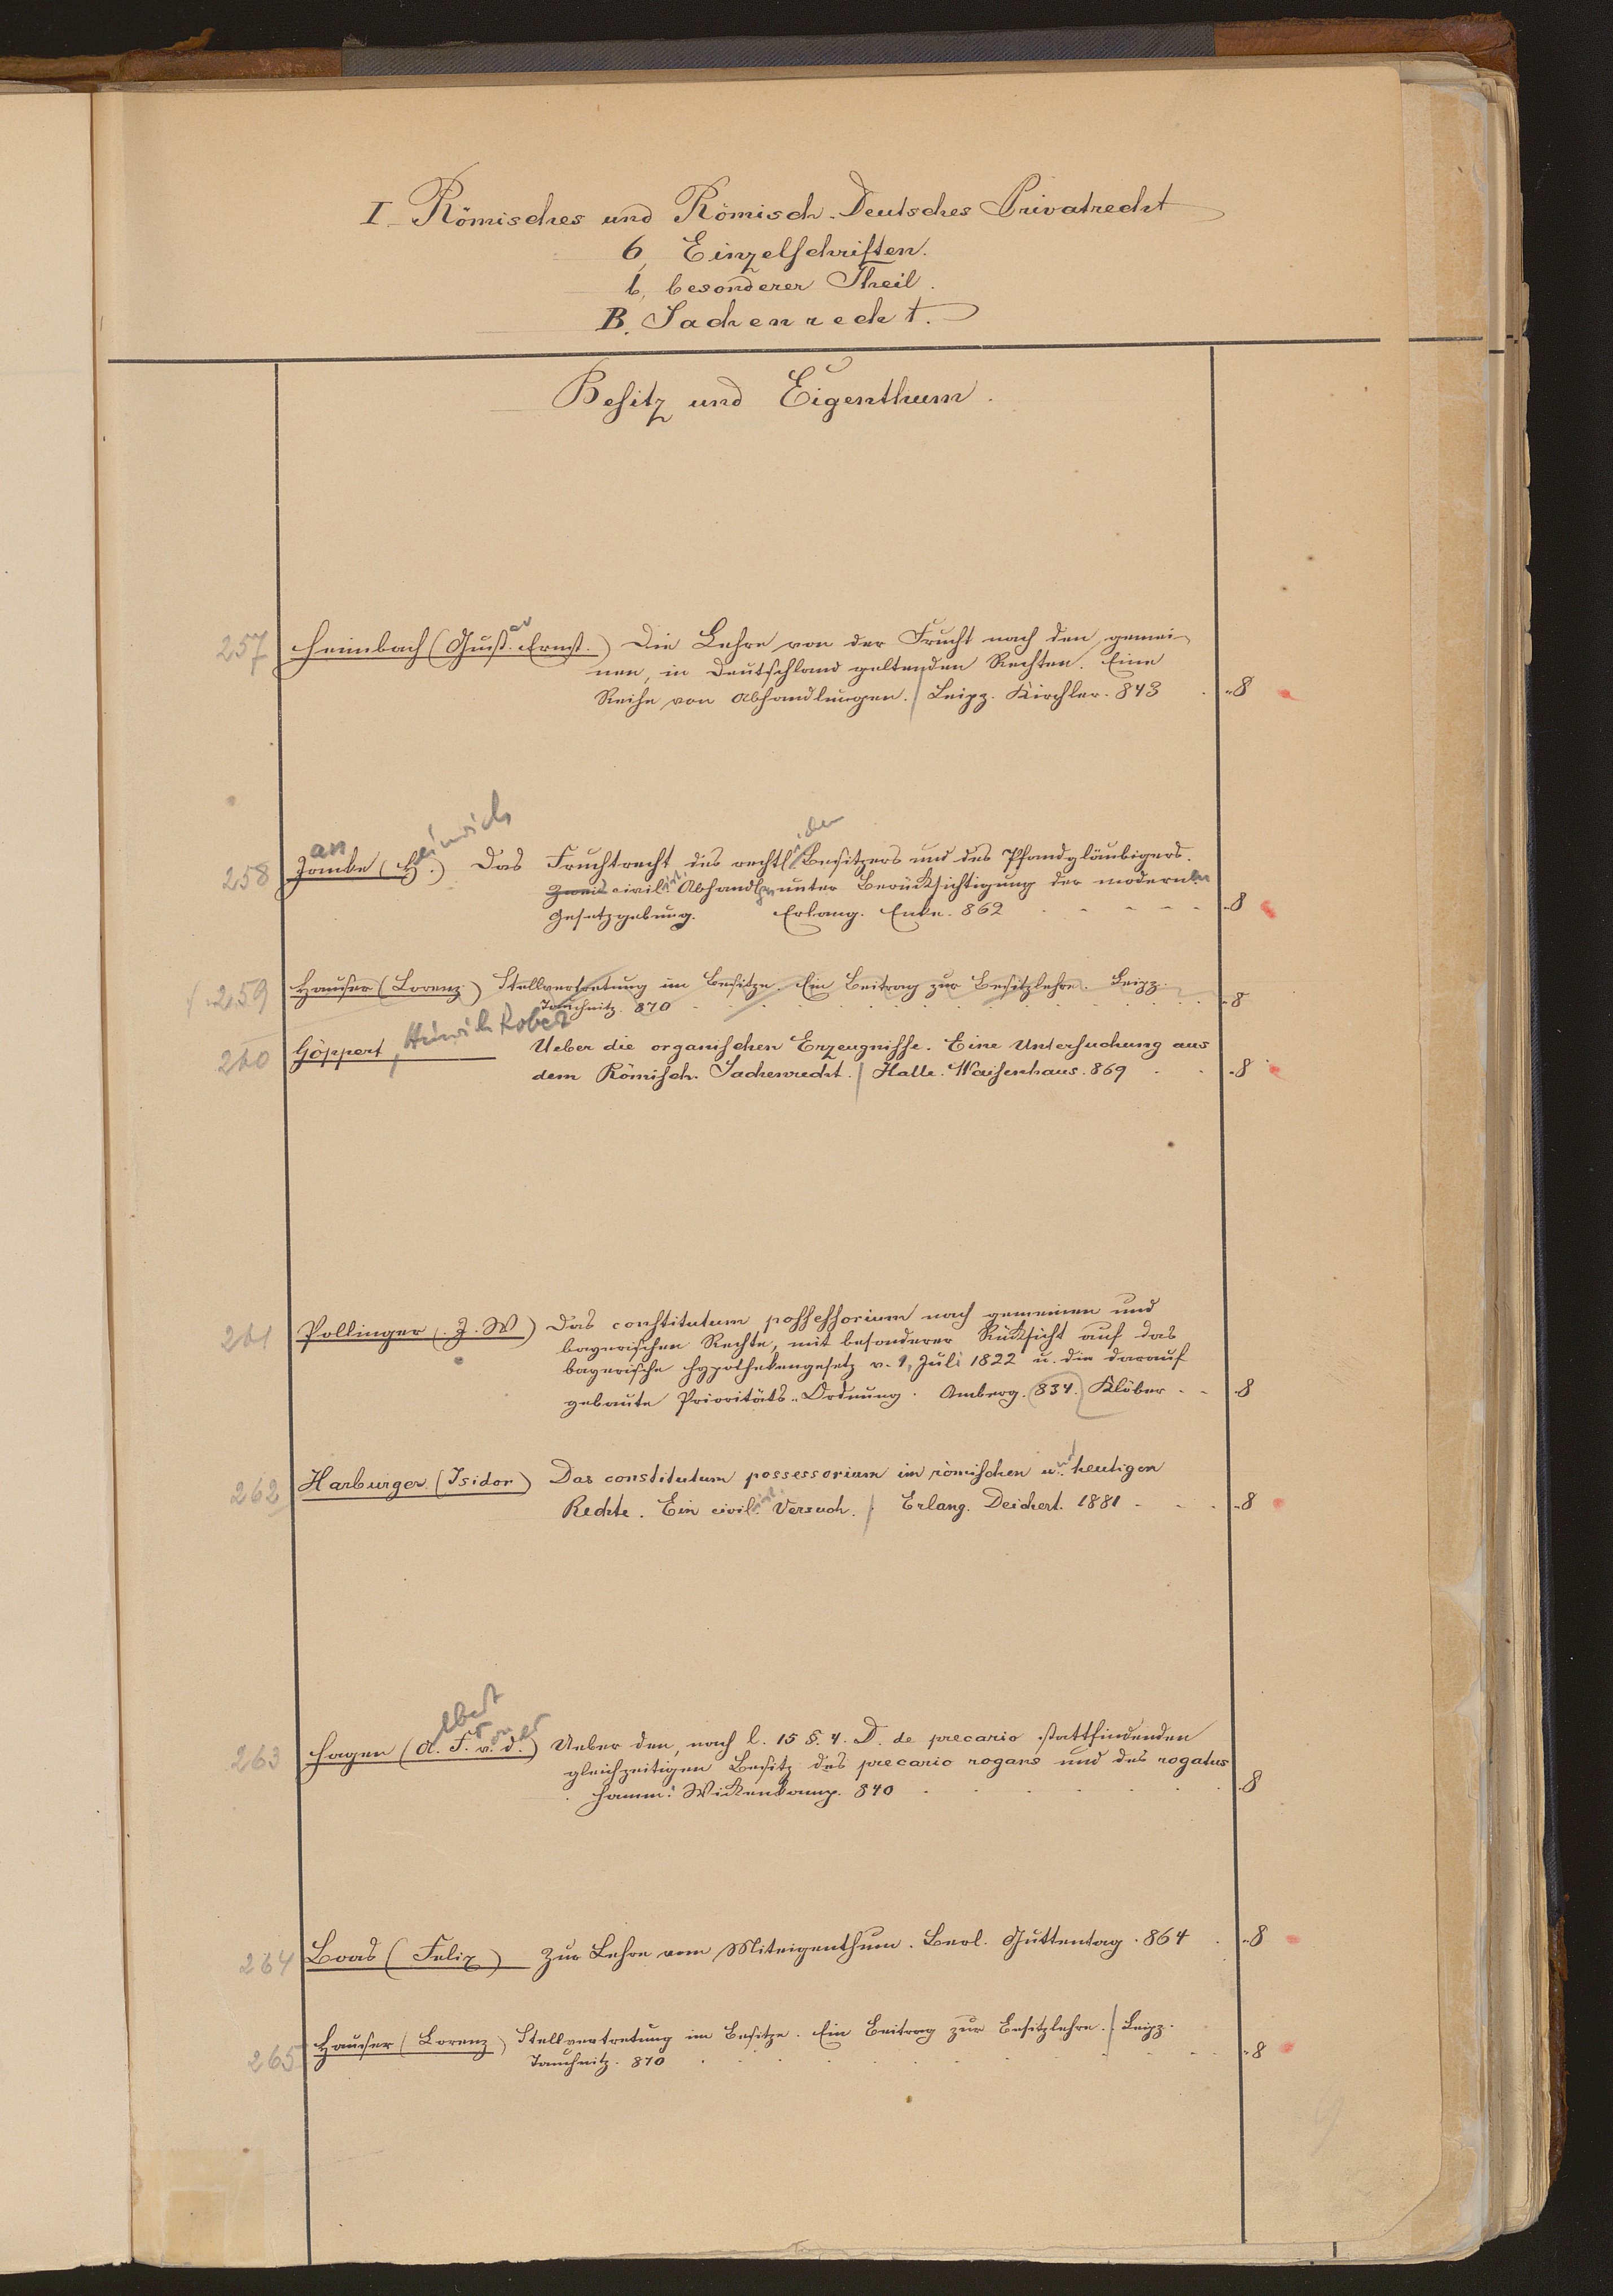 I. Römisches und Römisch-Deutsches Privatrecht
6, Einzelschriften.
b, besonderer Theil.
B. Sachenrecht.
Besitz und Eigenthum.
257 Heimbach (Gust.av Ernst.) Die Lehre von der Frucht nach den gemei-
nen, in Deutschland geltenden Rechten. Eine
Reihe von Abhandlungen. / Leipz. Kirchler. 843 . "8
einrich ichen
an
258 Janke (H.) Das Fruchtrecht des rechtl. Besitzers und des Pfandgläubigers.
Zwei civilist. Abhandlgn unter Berücksichtigung der modernen
Gesetzgebung. Erlang. Enke. 862 . - - - - - "8
259 Hauser (Lorenz) Stellvertretung im Besitze. Ein Beitrag zur Besitzlehre. Leipz.
Tauchnitz. 870 "8
260 Göppert, Heinrich Robert Ueber die organischen Erzeugnisse. Eine Untersuchung aus
dem Römisch. Sachenrecht. / Halle. Waisenhaus. 869 . . "8
261 Pollinger (J. W) Das constitutum possessorium nach gemeinen und
bayerischen Rechte, mit besonderer Rücksicht auf das
bayerische Hypothekengesetz v. 1, Juli 1822 u. die darauf
gebaute Prioritäts-Ordnung. Amberg. 834. Klöber - - "8
262 Harburger (Isidor) Das constitutum possessorium im römischen und heutigen
Rechte. Ein civilist. Versuch. / Erlang. Deichert. 1881 - - . "8
lbert
on er
263 Hagen (A. F. v. d.) Ueber den, nach l. 15 §. 4. D. de precario stattfindenden
gleichzeitigen Besitz des precario rogans und des rogatus
Hamm: Wickenkamp. 840 . . . . . "8
264 Boas (Felix) Zur Lehre vom Miteigenthum. Berl. Guttentag. 864 . "8
265 Hauser (Lorenz) Stellvertretung im Besitze. Ein Beitrag zur Besitzlehre. / Leipz.
Tauchnitz. 870 . . . . . "8